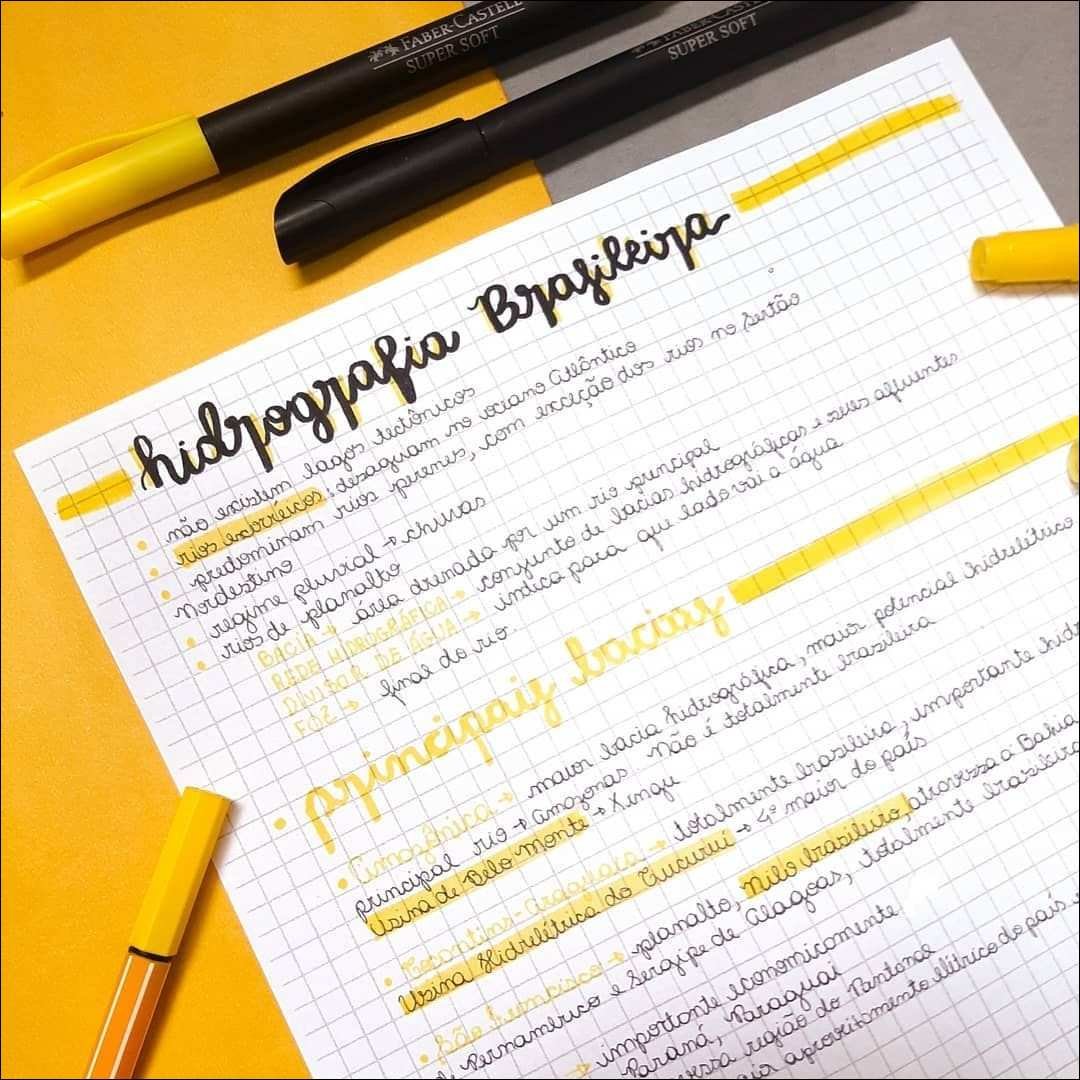 FABER-CASTELL
SUPER SOFT
SUPER SOFT
hidrografia Brasileira
não existem lagos tectônicos
rios exorréicos: desaguam no oceano Atlântico
predominam rios perenes, com exceção dos rios no Sertão
Nordestino
regime pluvial → chuvas
rios de planalto
BACIA → área drenada por um rio principal
REDE HIDROGRÁFICA → conjunto de bacias hidrográficas e seus afluentes
DIVISOR DE ÁGUA → indica para que lado vai a água
FOZ → final do rio.
principais bacias
Amazônica → maior bacia hidrográfica, maior potencial hidrelétrico
principal rio → Amazonas. Não é totalmente brasileira
Usina de Belo Monte → Xingu
Tocantins-Araguaia → totalmente brasileira, importante
Usina Hidrelétrica do Tucuruí → 4º maior do país
São Francisco → planalto, Nilo brasileiro, atravessa a Bahia
Pernambuco e Sergipe de Alagoas, totalmente brasileira
→ importante economicamente
Paraná, Paraguai
região do Pantanal
aproveitamento elétrico do país